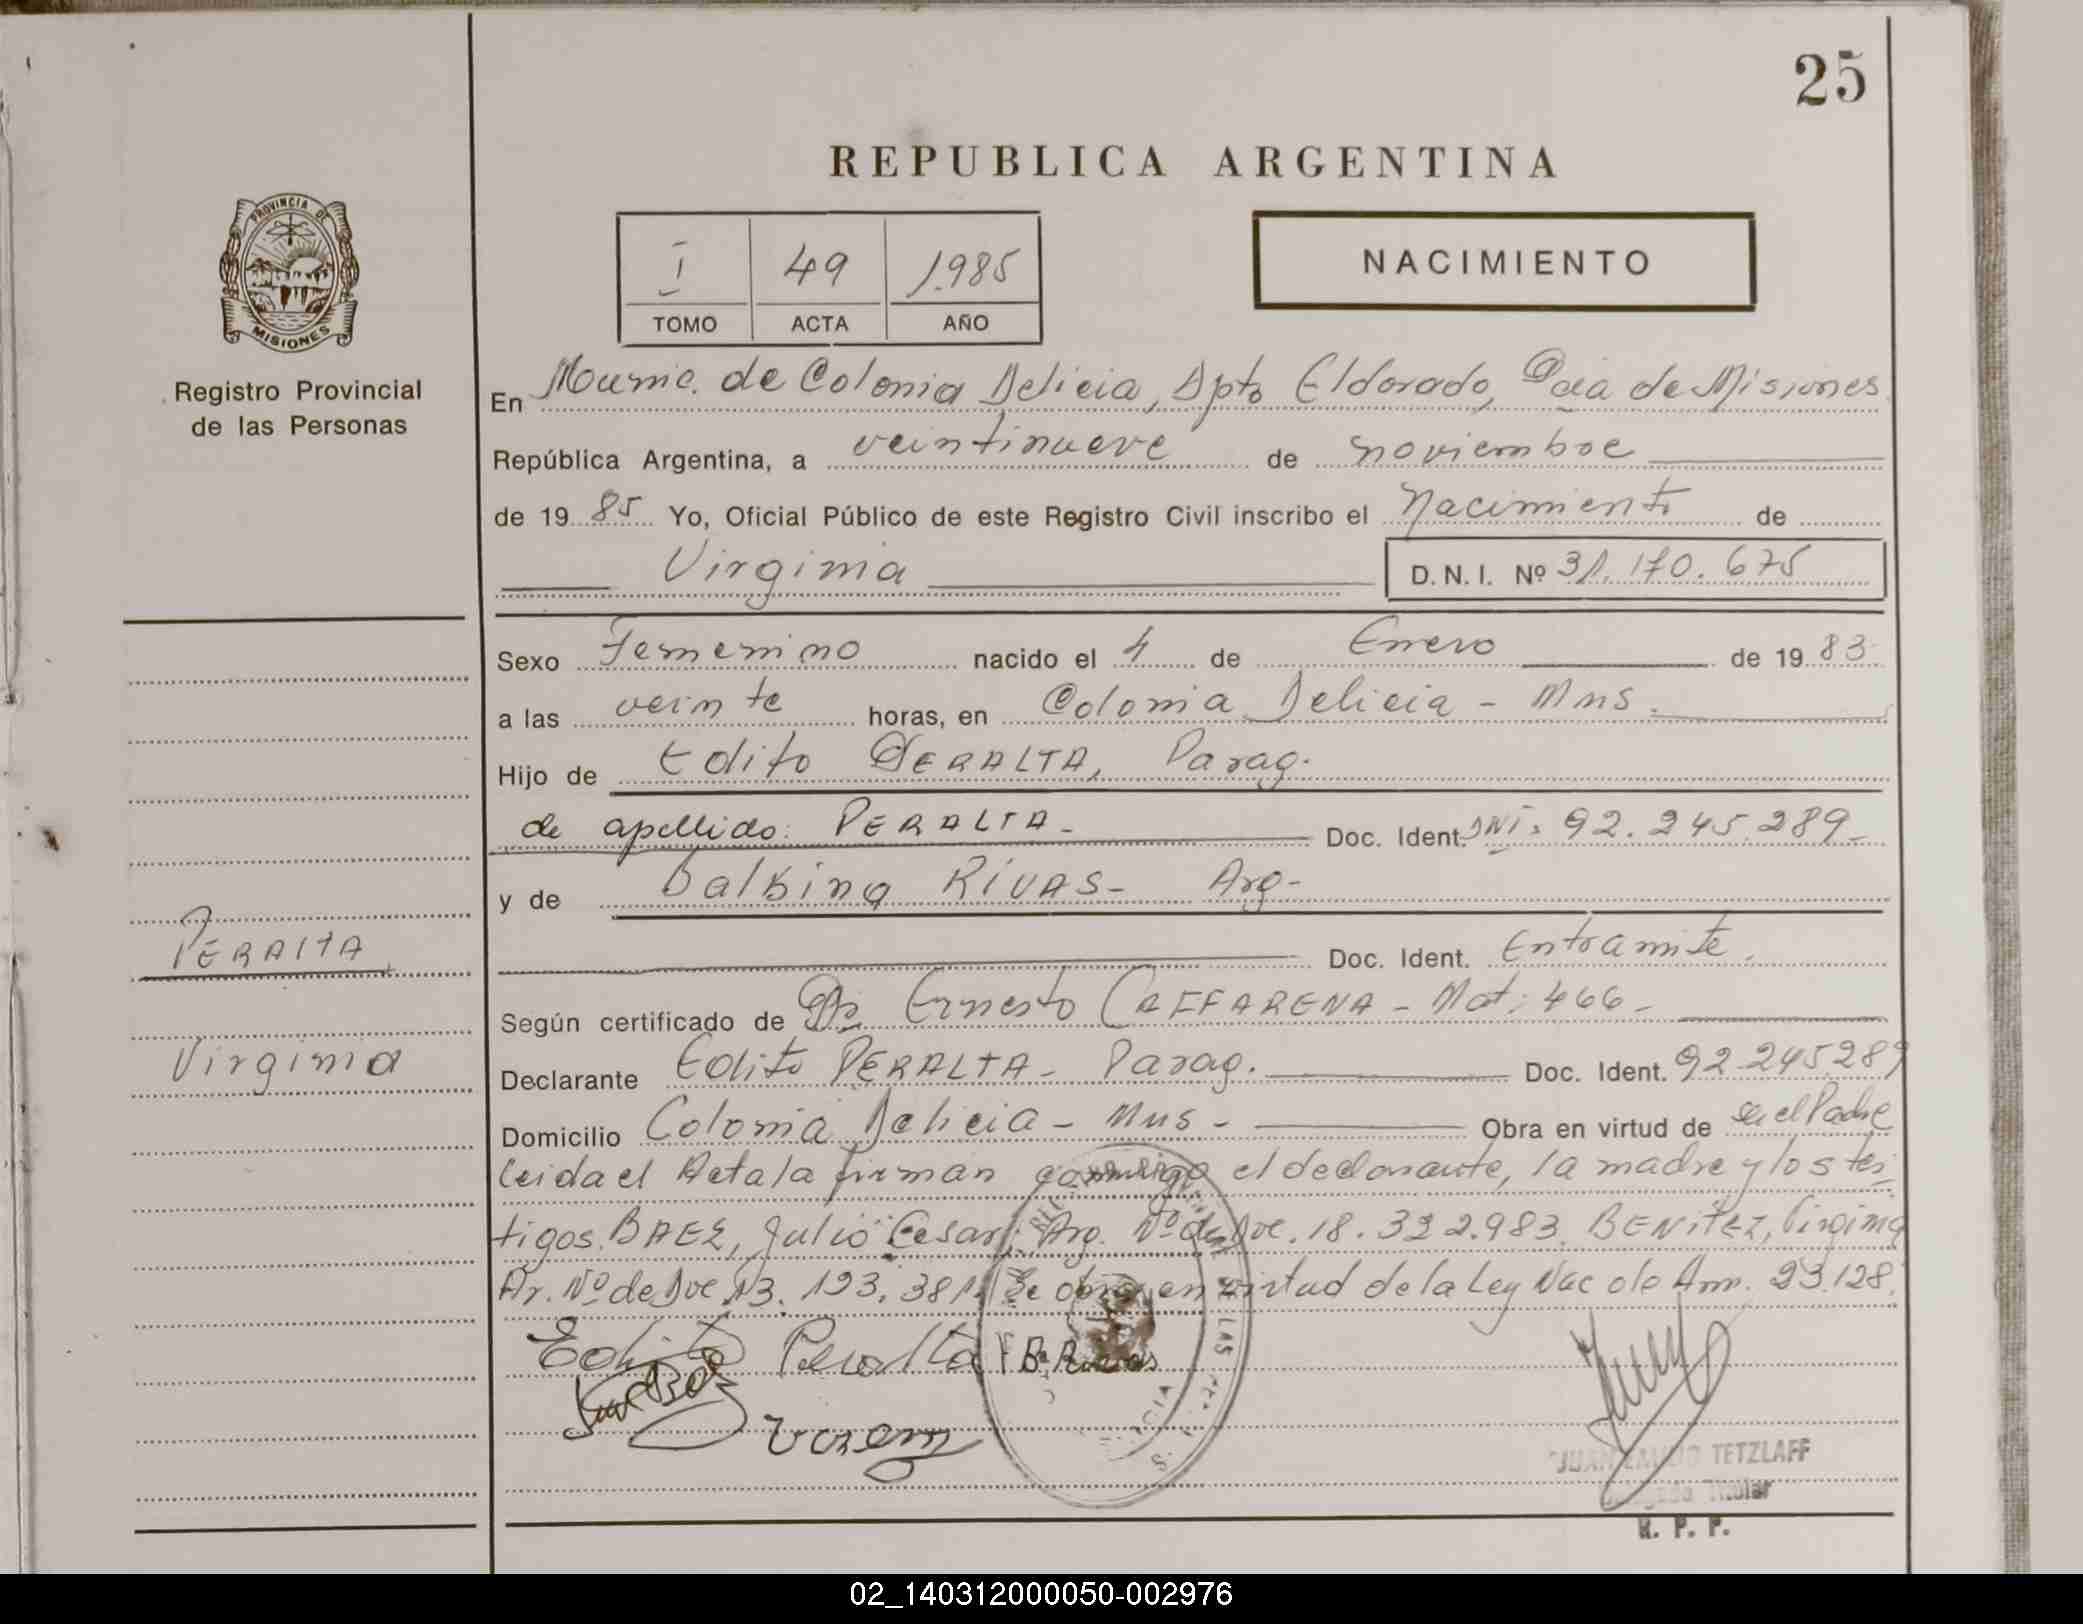 25
REPUBLICA ARGENTINA
I 49 1.985
TOMO ACTA AÑO
NACIMIENTO
PROVINCIA DE
MISIONES
Registro Provincial
de las Personas
En Munic. de Colonia Delicia, Dpto Eldorado, Pcia de Misiones
República Argentina, a veintinueve de noviembre
de 1985 Yo, Oficial Público de este Registro Civil inscribo el Nacimiento de
Virginia D.N.I. Nº 31.170.675
Sexo Femenino nacido el 4 de Enero de 1983
a las veinte horas, en Colonia Delicia - Mns.
Hijo de Edito PERALTA, Parag.
de apellido: PERALTA- Doc. Ident. DNI: 92.245.289-
y de Balbina RIVAS- Arg-
Doc. Ident. En tramite.
Según certificado de Dr. Ernesto CAFFARENA - Mat: 466-
Declarante Edito PERALTA- Parag. Doc. Ident. 92.245.289
Domicilio Colonia Delicia - Mns - Obra en virtud de ser el Padre
Leida el Acta la firman conmigo el declarante, la madre y los tes
tigos. BAEZ, Julio Cesar; Arg. Nº de Doc. 18.332.983. BENITEZ, Virginia
Ar. Nº de Doc 13.193.381. Se obra en virtud de la Ley Nac de Am. 23.128.
Edito Peralta B. Rivas
PERALTA
Virginia
JUAN EMILIO TETZLAFF
Delegado Titular
R. P. P.
02_140312000050-002976